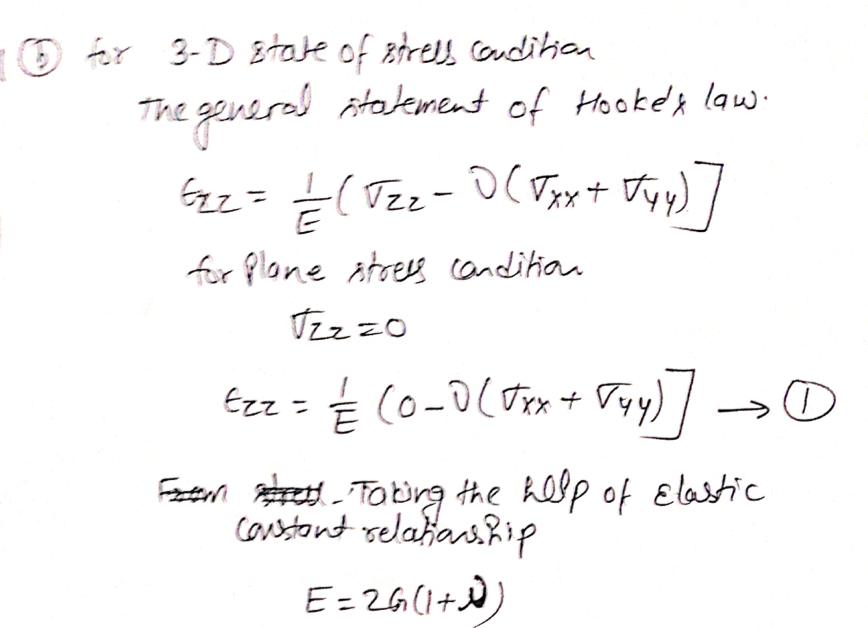 ⑤ for 3-D state of stress condition
The general statement of Hooke's law.
εzz = 1/E (σzz - ν(σxx + σyy)]
for plane stress condition
σzz = 0
εzz = 1/E (0 - ν(σxx + σyy)] → ①
From stress - Taking the help of Elastic
constant relationship
E = 2G(1+ν)